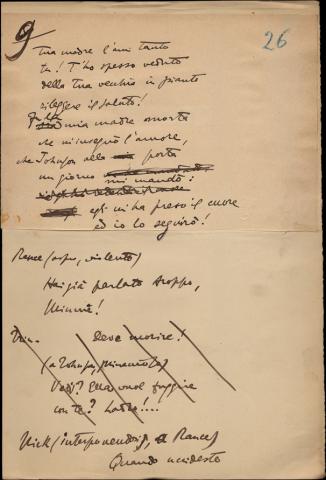 9
26
Tua madre l'ami tanto
tu! T'ho spesso veduto
della tua vecchia in pianto
rileggere il saluto!
Fu la mia madre morta
che m'insegnò l'amore,
che Johnson alla porta
un giorno
mi mandò:
egli m'ha preso il cuore
ed io lo seguirò!
Rance (aspro, violento)
Hai già parlato troppo,
Minnie!
Deve morire!
(a Johnson, minaccioso)
Vedi? Ella vuol fuggire
con te? Ladro!....
Nick (interponendosi, a Rance)
Quando uccideste